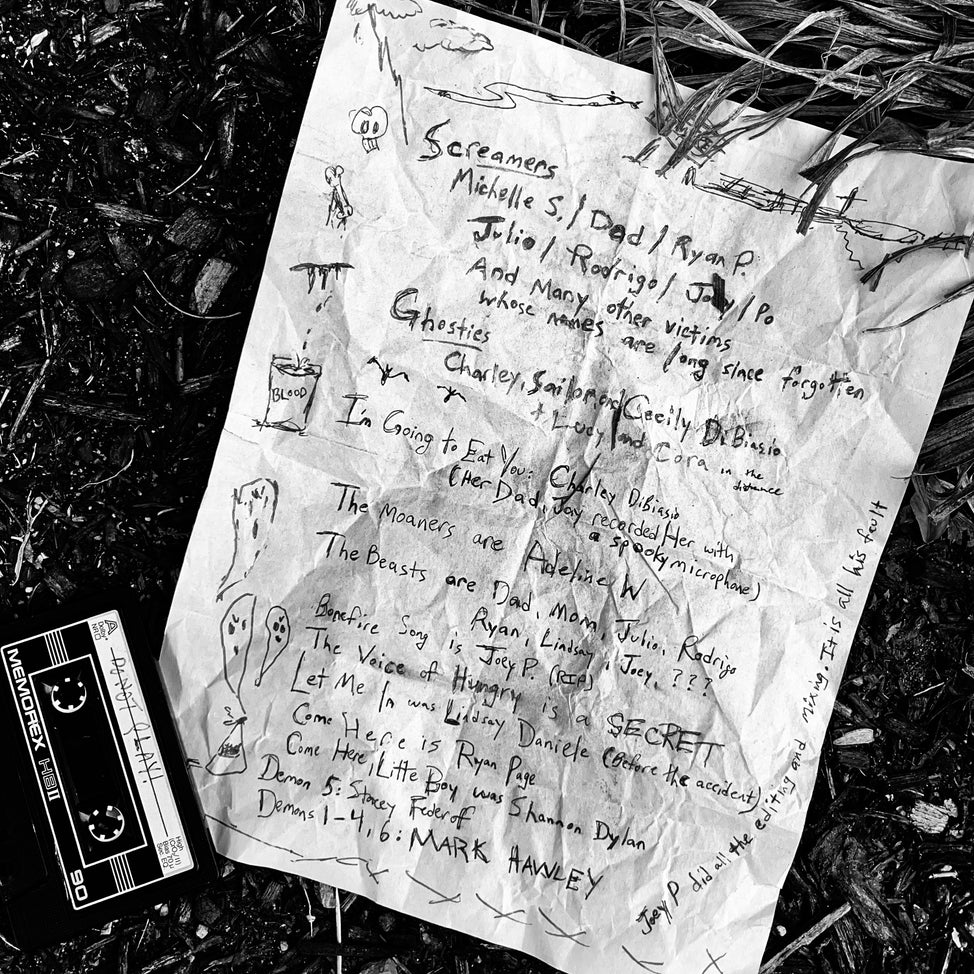 Screamers
Michelle S. / Dad / Ryan P.
Julio / Rodrigo / Joey / Po
And Many other victims
whose names are long since forgotten
Ghosties
Charley, Sailor, and Cecily DiBiasio
+ Lucy and Cora in the distance
BLOOD
I'm Going to Eat You: Charley DiBiasio
(Her Dad, Jay recorded Her with
a spooky microphone)
The Moaners are Adeline W
The Beasts are Dad, Mom, Julio, Rodrigo
Ryan, Lindsay, Joey, ???
Bonefire Song is Joey P. (RIP)
The Voice of Hungry is a SECRET
Let Me In was Lindsay Daniele (Before the accident)
Come Here is Ryan Page
Come Here, Little Boy was Shannon Dylan
Demon 5: Stacey Federoff
Demons 1-4, 6: MARK HAWLEY
Joey P did all the editing and mixing. It is all his fault
A
Dolby NR
DO NOT PLAY!
MEMOREX HBII
90
High